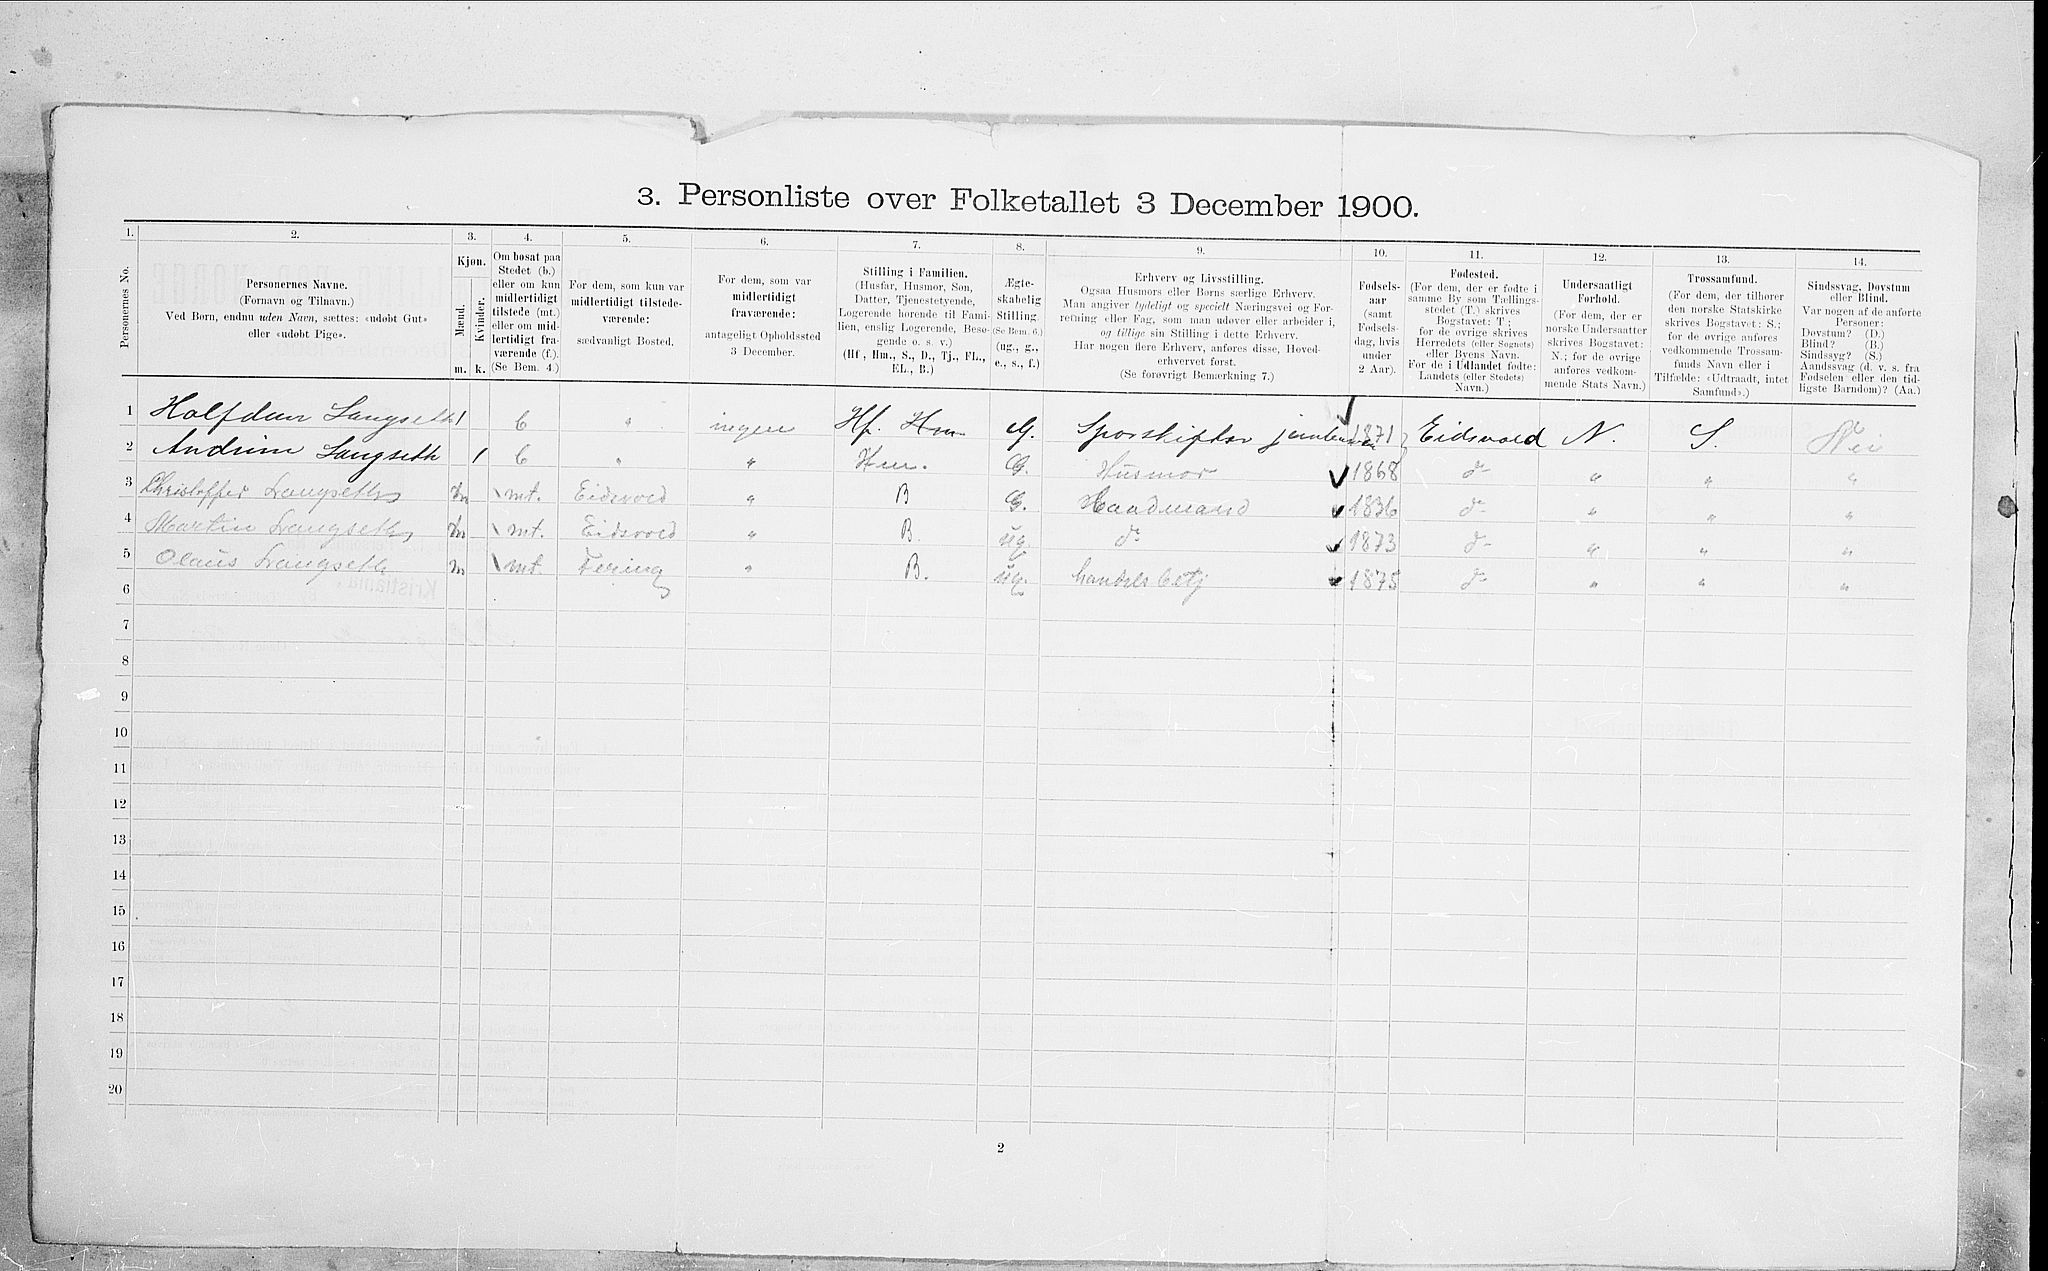 3. Personliste over Folketallet 3 December 1900.
1. 2. 3. 4. 5. 6. 7. 8. 9. 10. 11. 12. 13. 14.
Personernes No.
Personernes Navne.
(Fornavn og Tilnavn.)
Ved Børn, endnu uden Navn, sættes: «udøbt Gut»
eller «udøbt Pige».
Kjøn.
Mænd.
Kvinder.
m. k.
Om bosat paa
Stedet (b.)
eller om kun
midlertidigt
tilstede (mt.)
eller om mid-
lertidigt fra-
værende (f.).
(Se Bem. 4.)
For dem, som kun var
midlertidigt tilstede-
værende:
sædvanligt Bosted.
For dem, som var
midlertidigt
fraværende:
antageligt Opholdssted
3 December.
Stilling i Familien.
(Husfar, Husmor, Søn,
Datter, Tjenestetyende,
Logerende hørende til Fami-
lien, enslig Logerende, Besø-
gende o. s. v.)
(Hf, Hm., S., D., Tj., FL.,
EL., B.)
Ægte-
skabelig
Stilling.
(Se Bem. 6.)
(ug., g.,
e., s., f.)
Erhverv og Livsstilling.
Ogsaa Husmors eller Børns særlige Erhverv.
Man angiver tydeligt og specielt Næringsvei og For-
retning eller Fag, som man udøver eller arbeider i,
og tillige sin Stilling i dette Erhverv.
Har nogen flere Erhverv, anføres disse, Hoved-
erhvervet først.
(Se forøvrigt Bemærkning 7.)
Fødsels-
aar
(samt
Fødsels-
dag, hvis
under
2 Aar).
Fødested.
(For dem, der er fødte i
samme By som Tællings-
stedet (T.) skrives
Bogstavet: T;
for de øvrige skrives
Herredets (eller Sognets)
eller Byens Navn.
For de i Udlandet fødte:
Landets (eller Stedets)
Navn.)
Undersaatligt
Forhold.
(For dem, der er
norske Undersaatter
skrives Bogstavet:
N.; for de øvrige
anføres vedkom-
mende Stats Navn.)
Trossamfund.
(For dem, der tilhører
den norske Statskirke
skrives Bogstavet: S.;
for de øvrige anføres
vedkommende Trossam-
funds Navn eller i
Tilfælde: «Udtraadt, intet
Samfund».)
Sindssvag, Døvstum
eller Blind.
Var nogen af de anførte
Personer:
Døvstum? (D.)
Blind? (B.)
Sindssyg? (S.)
Aandssvag (d. v. s. fra
Fødselen eller den tid-
ligste Barndom)? (Aa.)
1 Halfdan Langseth 1 b " ingen Hf. Hm G. Sporskifter 1871 Eidsvold N. S. Nei
2 Langseth 1 b " " Hm. G. Husmor 1868 d- " " "
3 Christoffer Langseth m mt. Eidsvold " B G. Gaardmand 1836 d- " " "
4 Martin Langseth m mt. Eidsvold " B. ug. do 1873 d- " " "
5 Olaus Langseth m mt. " B. ug. handelsbetj 1875 d- " " "
6
7
8
9
10
11
12
13
14
15
16
17
18
19
20
Kristiania.
2